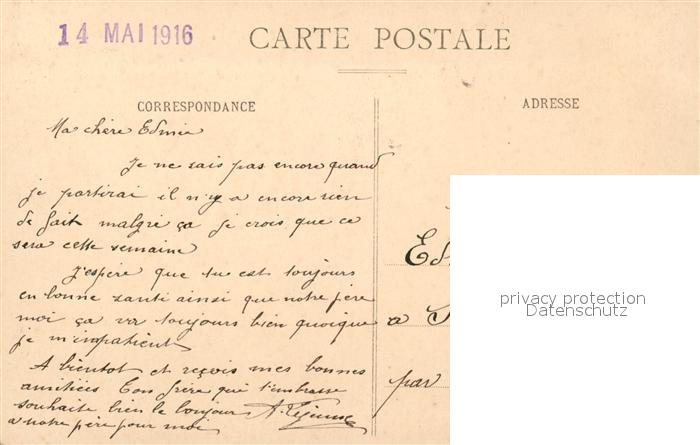 14 MAI 1916
CARTE POSTALE
CORRESPONDANCE
ADRESSE
Ma chère Edmée
Je ne sais pas encore quand
je partirai il n'y a encore rien
de fait malgré ça je crois que ce
sera cette semaine
J'espère que tu est toujours
en bonne santé ainsi que notre père
moi ça va toujours bien quoique
je m'impatient
A bientot et reçois mes bonnes
amitiées Ton frère qui t'embrasse
souhaite bien le bonjour
a notre père pour moi
Ed
a
par
privacy protection
Datenschutz